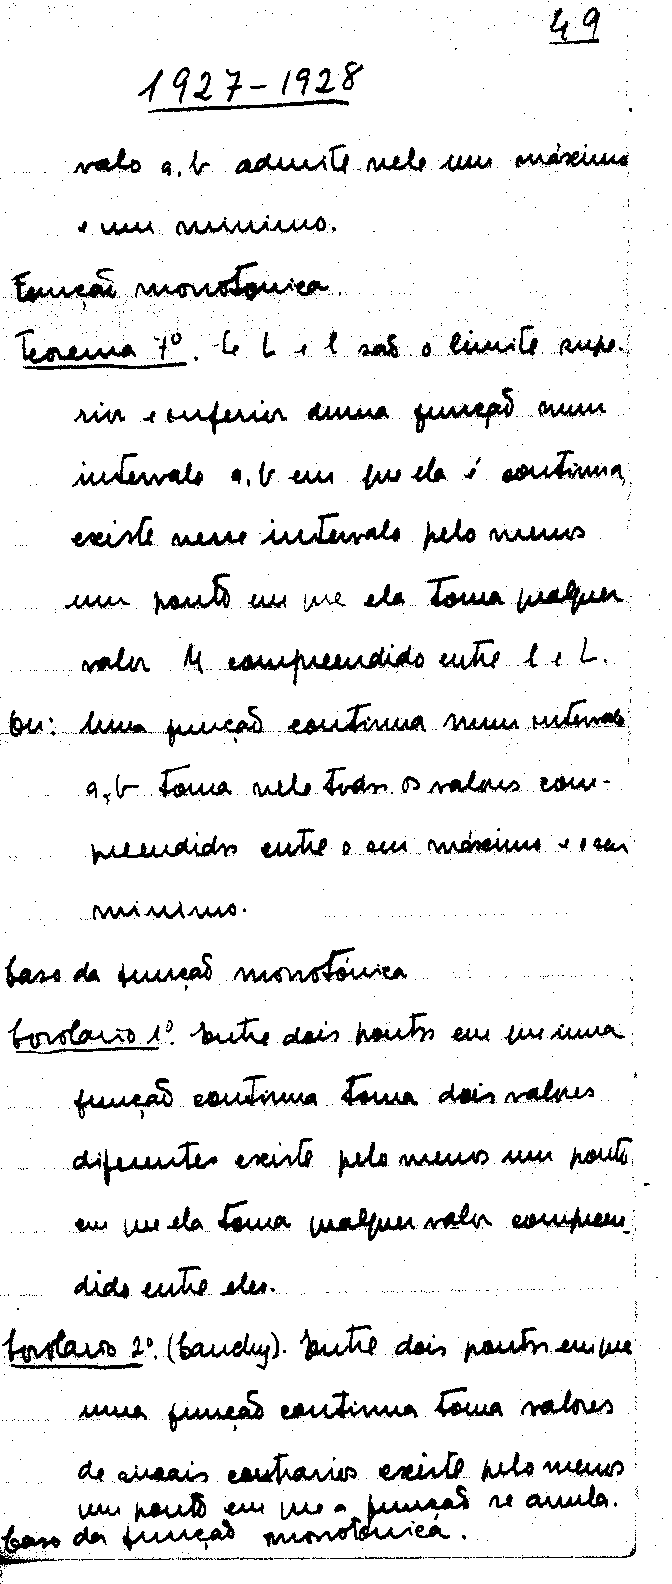 49
1927-1928
valo a,b admite nele um máximo
e um minimo.
Função monotonica.
Teorema 7º. Se L e l são o limite supe-
rior e inferior duma função num
intervalo a,b em que ela é continua,
existe nesse intervalo pelo menos
um ponto em que ela toma qualquer
valor M compreendido entre l e L.
Ou: Uma função continua num intervalo
a,b toma nele todos os valores com-
preendidos entre o seu máximo e o seu
minimo.
Caso da função monotónica
Corolario 1º. Entre dois pontos em que uma
função continua toma dois valores
diferentes existe pelo menos um ponto
em que ela toma qualquer valor compreen-
dido entre eles.
Corolario 2º. (Cauchy). Entre dois pontos em que
uma função continua toma valores
de sinais contrarios existe pelo menos
um ponto em que a função se anula.
Caso da função monotónica.